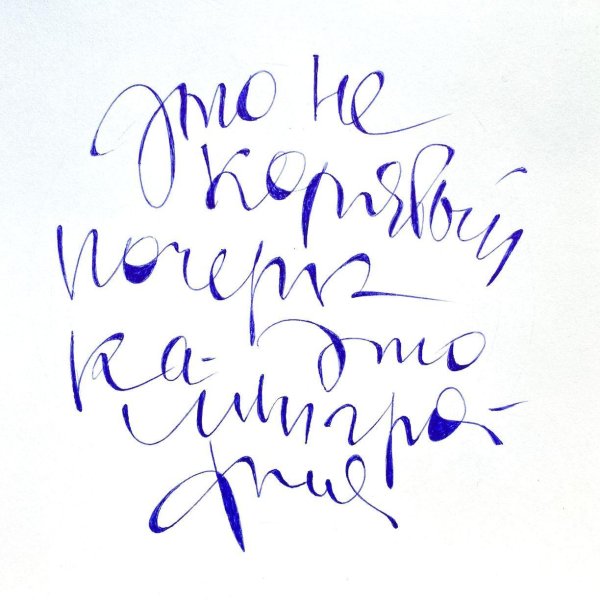 это не
корявый
почерк
это
ка-
ллигра-
фия